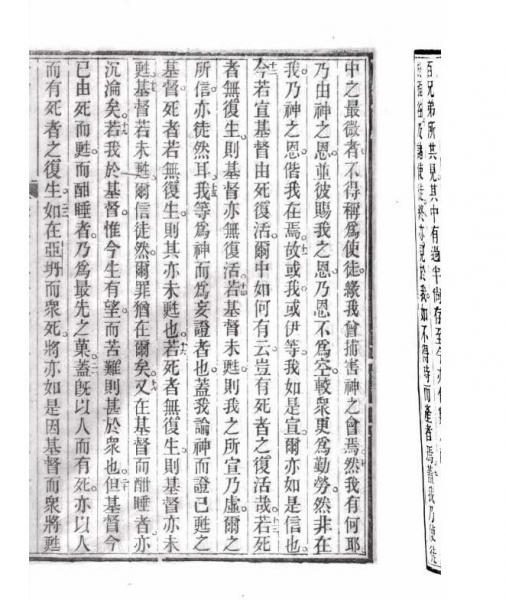 百兄弟所共見其中有過半尚存至今亦
使徒終亦見於我如不得時而產者焉蓋我乃使徒
中之最微者不得稱爲使徒緣我曾捕害神之會焉然我有何耶
乃由神之恩並彼賜我之恩乃恩不爲空較衆更爲勤勞然非在
我乃神之恩偕我在焉故或我或伊等我如是宣爾亦如是信也
今若宣基督由死復活爾中如何有云豈有死者之復活哉若死
者無復生則基督亦無復活若基督未甦則我之所宣乃虛爾之
所信亦徒然耳我等爲神而爲妄證者也蓋我論神而證已甦之
基督死者若無復生則其亦未甦也若死者無復生則基督亦未
甦基督若未甦爾信徒然爾罪猶在爾矣又在基督而酣睡者亦
沉淪矣若我於基督惟今生有望而苦難則甚於衆也但基督今
已由死而甦而酣睡者乃爲最先之菓蓋旣以人而有死亦以人
而有死者之復生如在亞坍而衆死將亦如是因基督而衆將甦